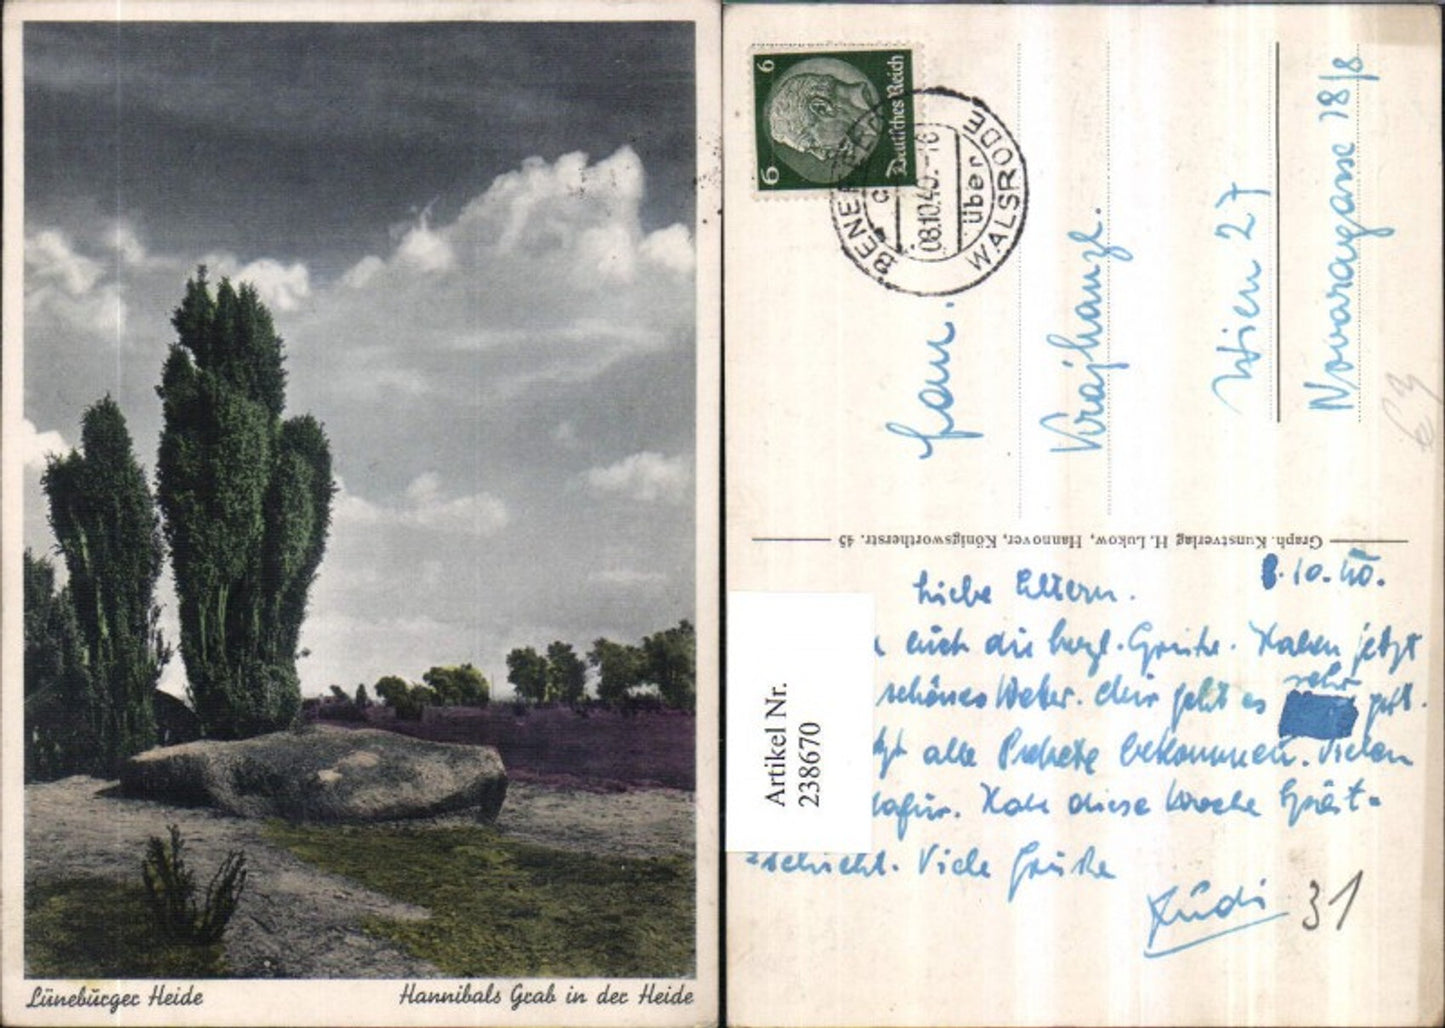 Lüneburger Heide
Hannibals Grab in der Heide
6
6
Deutsches Reich
BENE
über
WALSRODE
08.10.40.-16
Krajhanzl.
Wien 27
Novaragasse 18/8
Graph. Kunstverlag H. Lukow, Hannover, Königswortherstr. 45
8.10.40.
Liebe Eltern.
euch die herzl. Grüße. Haben jetzt
schönes Wetter. Mir geht es sehr gut.
alle Pakete bekommen. Vielen
dafür. Habe diese Woche Spät-
schicht. Viele Grüße
Rudi
31
Artikel Nr.
238670